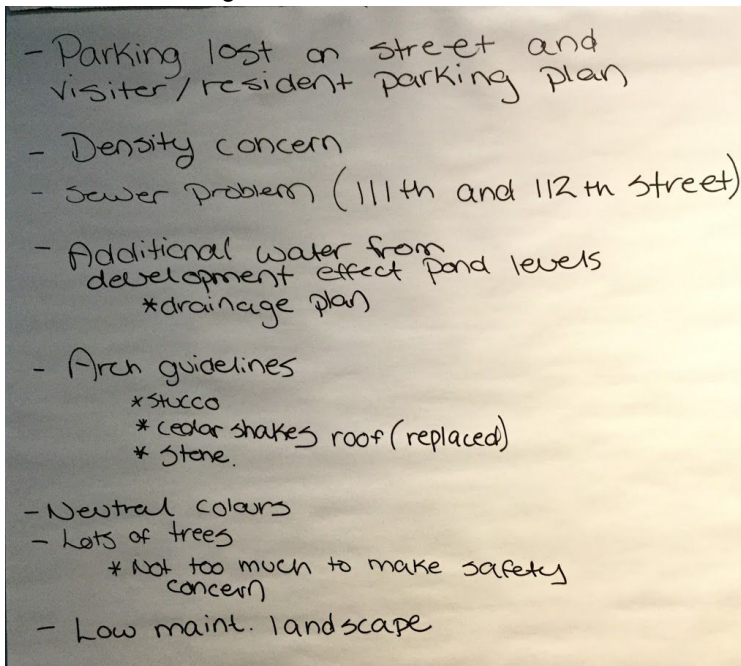 - Parking lost on street and
visiter/resident parking plan
- Density concern
- Sewer problem (111th and 112th street)
- Additional water from
development effect pond levels
*drainage plan
- Arch guidelines
*stucco
* cedar shakes roof (replaced)
* Stone.
- Neutral colours
- Lots of trees
* Not too much to make safety
concern
- Low maint. landscape